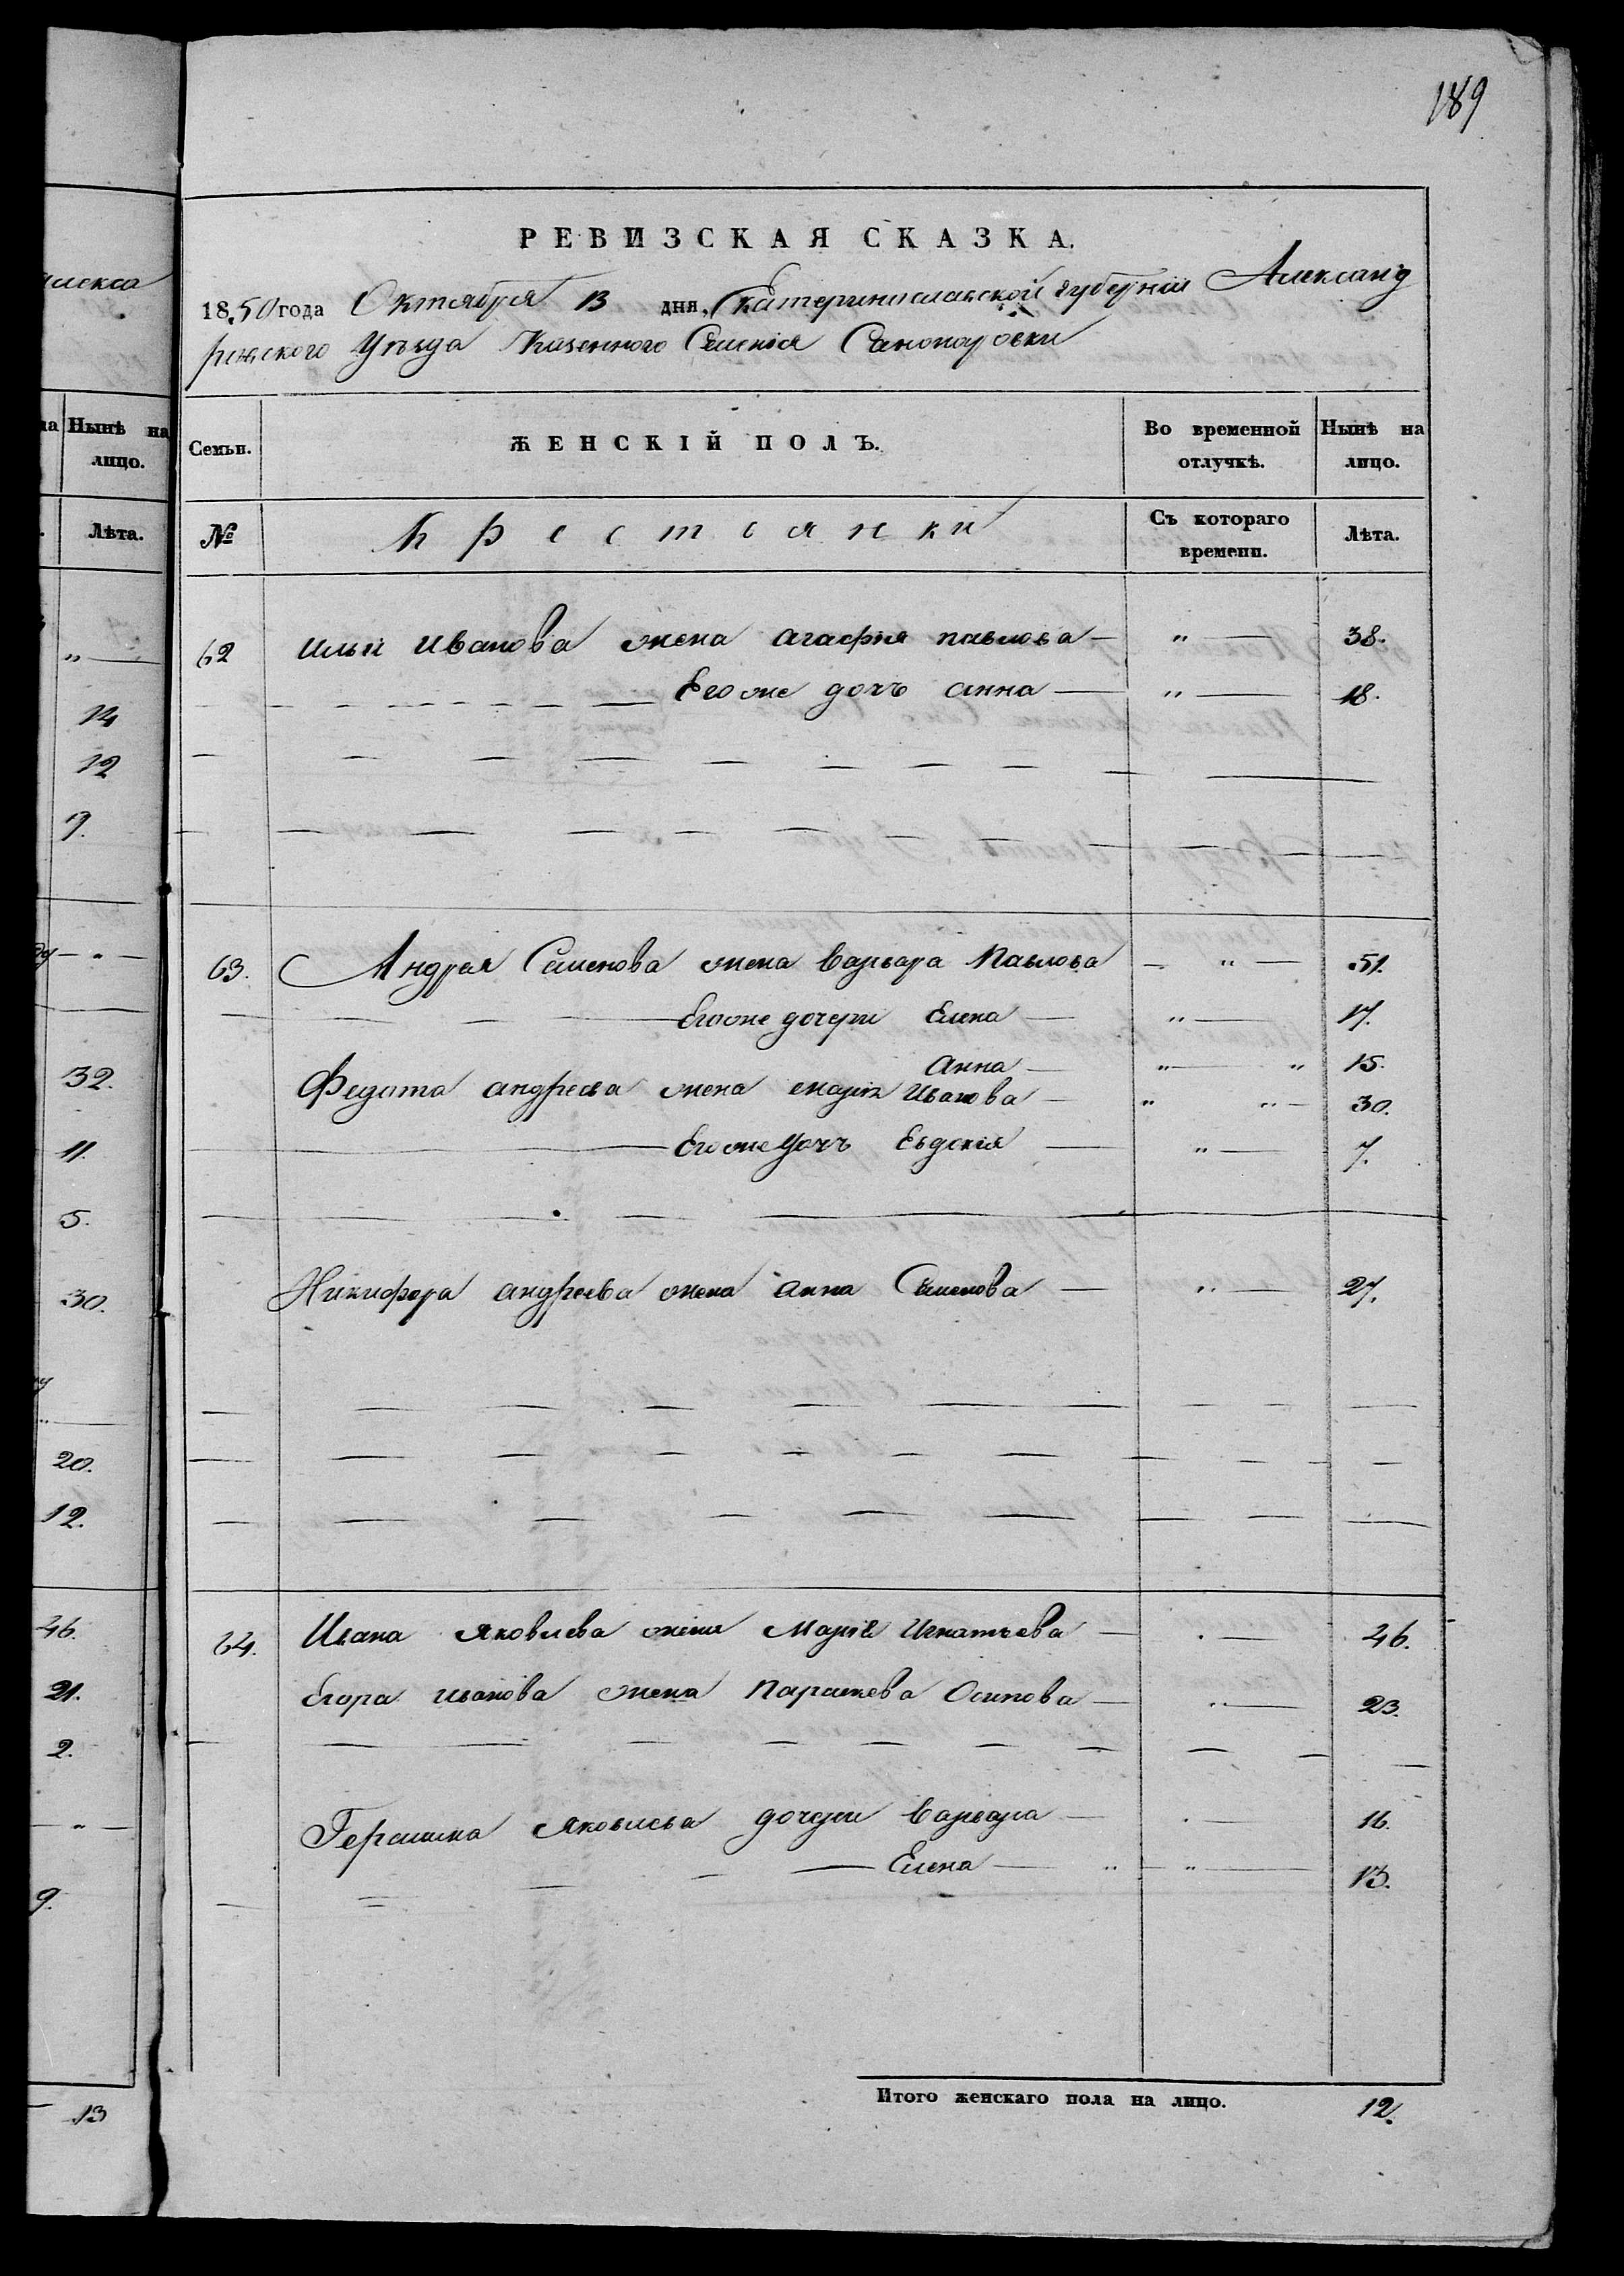 189
РЕВИЗСКАЯ СКАЗКА.
1850 года Октября 13 дня, Екатеринославской губерніи Александ
ровского Уезда Казенного Селенія
Семьи. ЖЕНСКІЙ ПОЛЪ. Во временной отлучкѣ. Нынѣ на лицо.
№ Крестьянки Съ котораго времени. Лѣта.
62 Ильи Иванова жена агафия павлова — " — 38.
Его же дочь анна — " — 18.
63. Андрея Семенова жена варвара Павлова — " — 51.
Его же дочери Елена — " — 17.
Анна — " — " 15.
Федота андреева жена марія Иванова — " " — 30.
Его же дочь Евдокія — " — 7.
Никифора андреева жена анна Семенова — " — 27.
64. Ивана яковлева жена Марія Игнатьева — " — 46.
Егора иванова жена параскева Осипова — " — 23.
яковлева дочери варвара — " — 16.
Елена — " — " — 13.
Итого женскаго пола на лицо. 12.
алекса
на Нынѣ на
лицо.
Лѣта.
" —
14
12
9.
— " —
32.
11.
5.
30.
" —
20.
12.
46.
21.
2.
— " —
9.
13